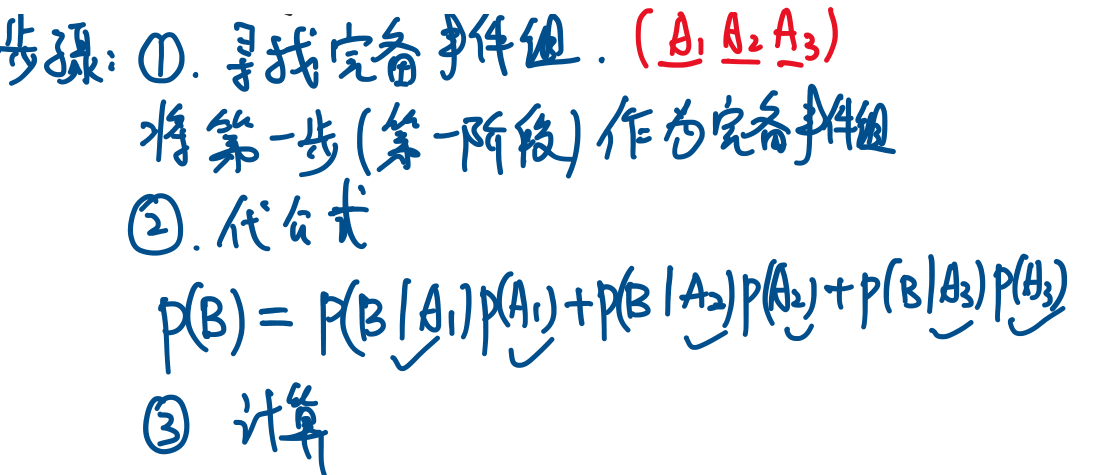 步骤: ①. 寻找完备事件组. (A₁ A₂ A₃)
将第一步(第一阶段)作为完备事件组
②. 代公式
P(B) = P(B|A₁)P(A₁)+P(B|A₂)P(A₂)+P(B|A₃)P(A₃)
③ 计算